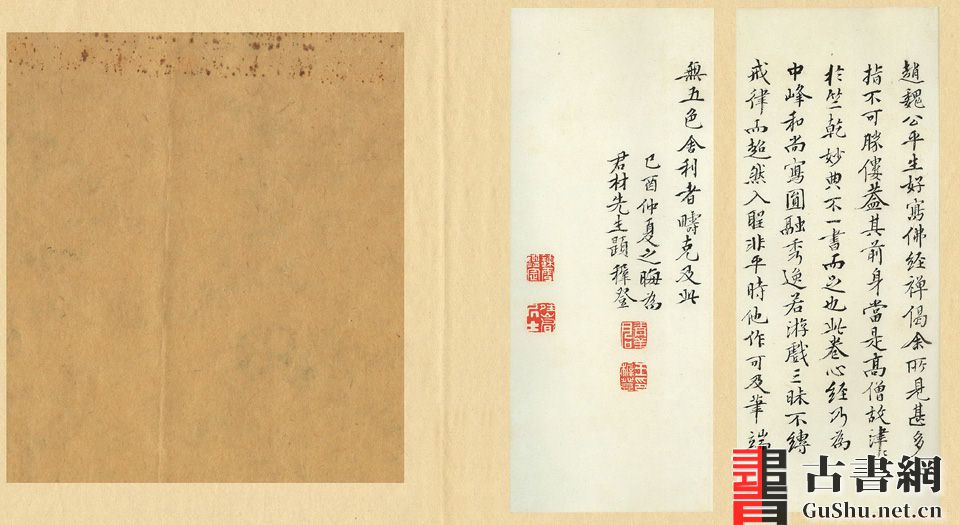 趙魏公平生好寫佛經禅偈余所見甚多
指不可勝僂蓋其前身當是髙僧故津〻
於竺乾妙典不一書而足也此卷心經乃為
中峰和尚寫圓融秀逸若游戲三昧不縛
戒律而超然入聖非平時他作可及筆端
無五色舍利者疇克及此
己酉仲夏之晦為
君材先生題穉登
古書網
GuShu.net.cn